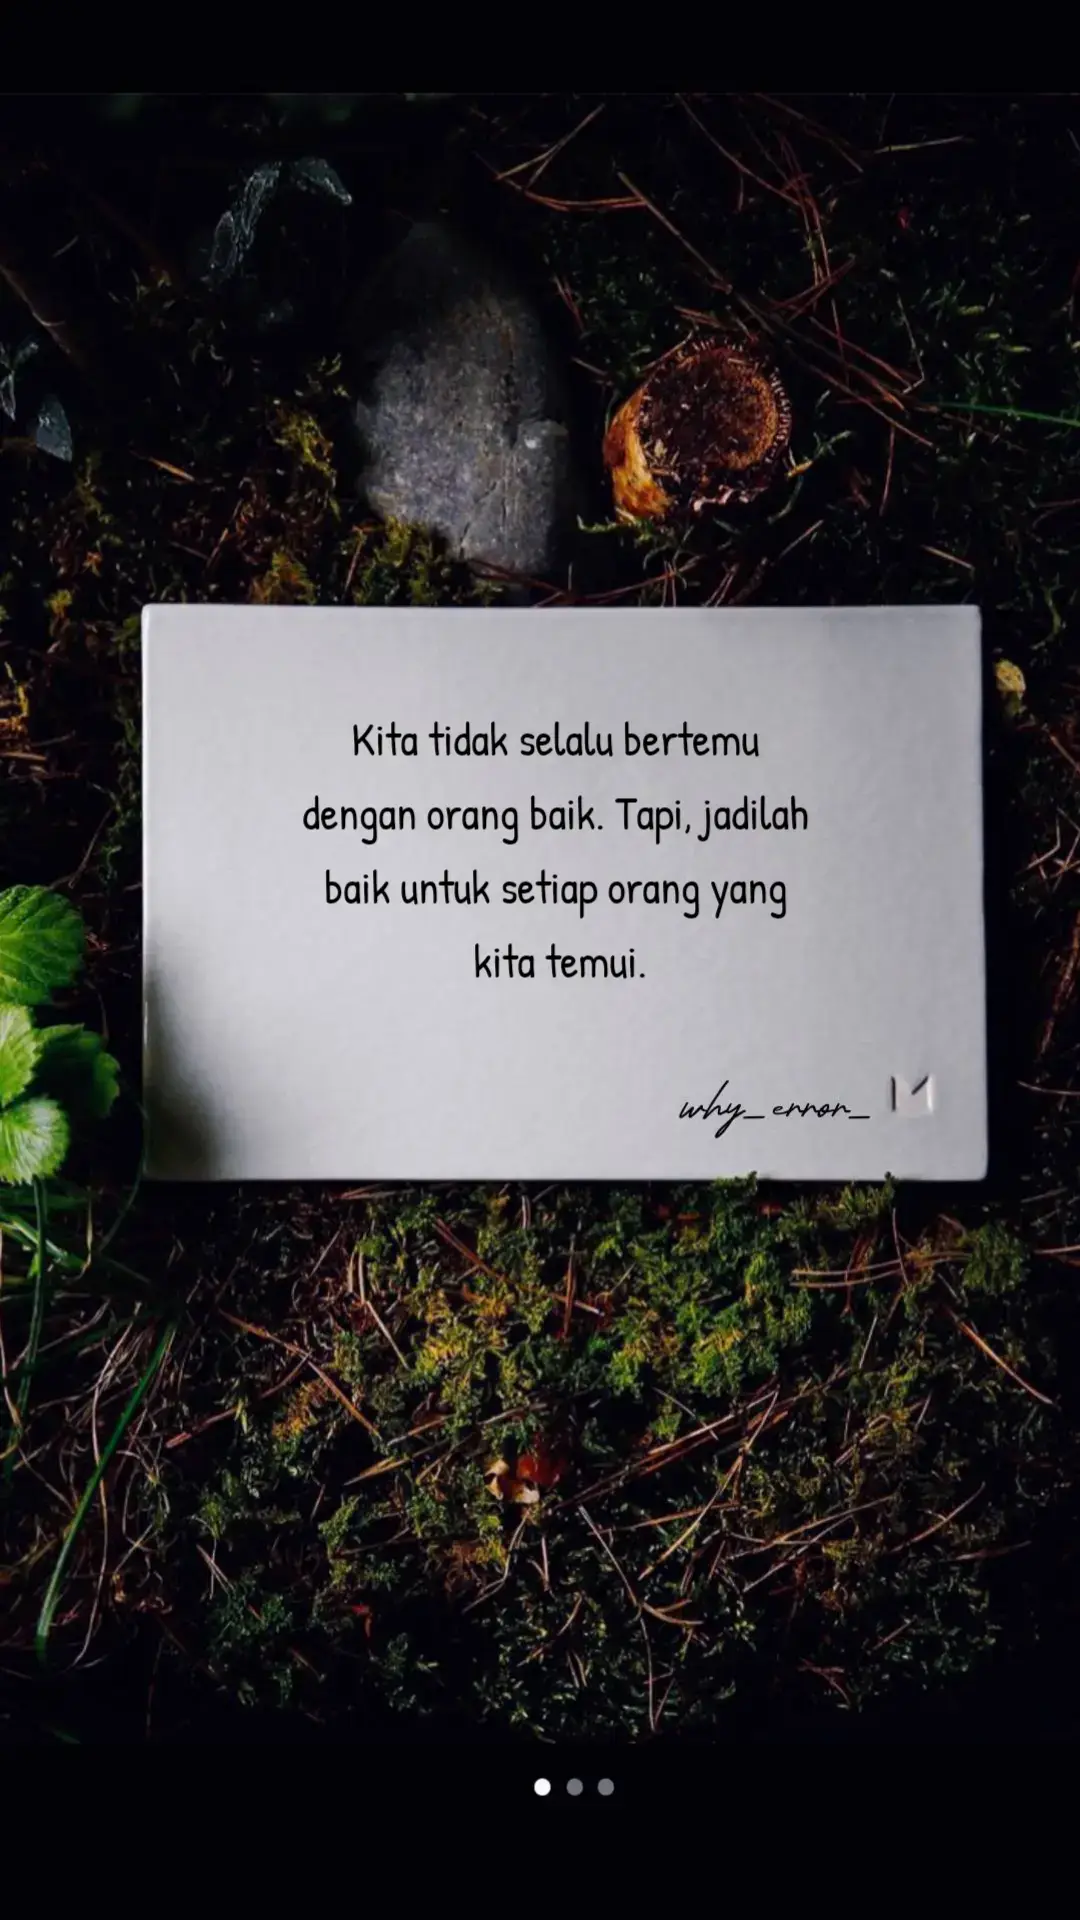 Kita tidak selalu bertemu
dengan orang baik. Tapi, jadilah
baik untuk setiap orang yang
kita temui.
why_error_